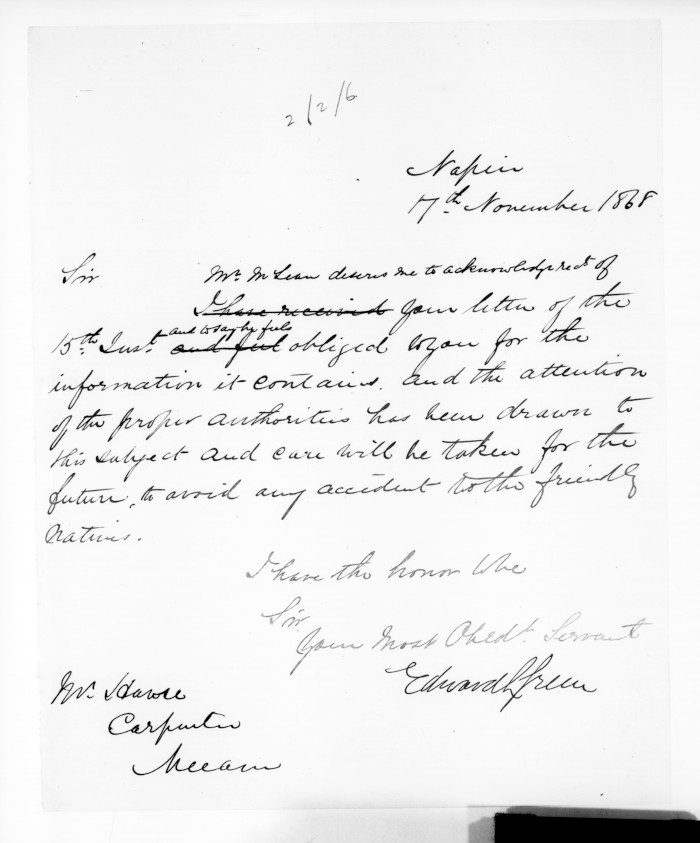 2/2/6
Napier
17th November 1868
Sir Mr McLean desires me to acknowledge rect of
I have received your letter of the
and to say he feels
15th Inst. and feel obliged to you for the
information it contains. and the attention
of the proper authorities has been drawn to
this subject and care will be taken for the
future, to avoid any accident to the friendly
natives.
I have the honor to be
Sir
Your Most Obedt. Servant
Edward Green
Mr.
Carpenter
Meeanee